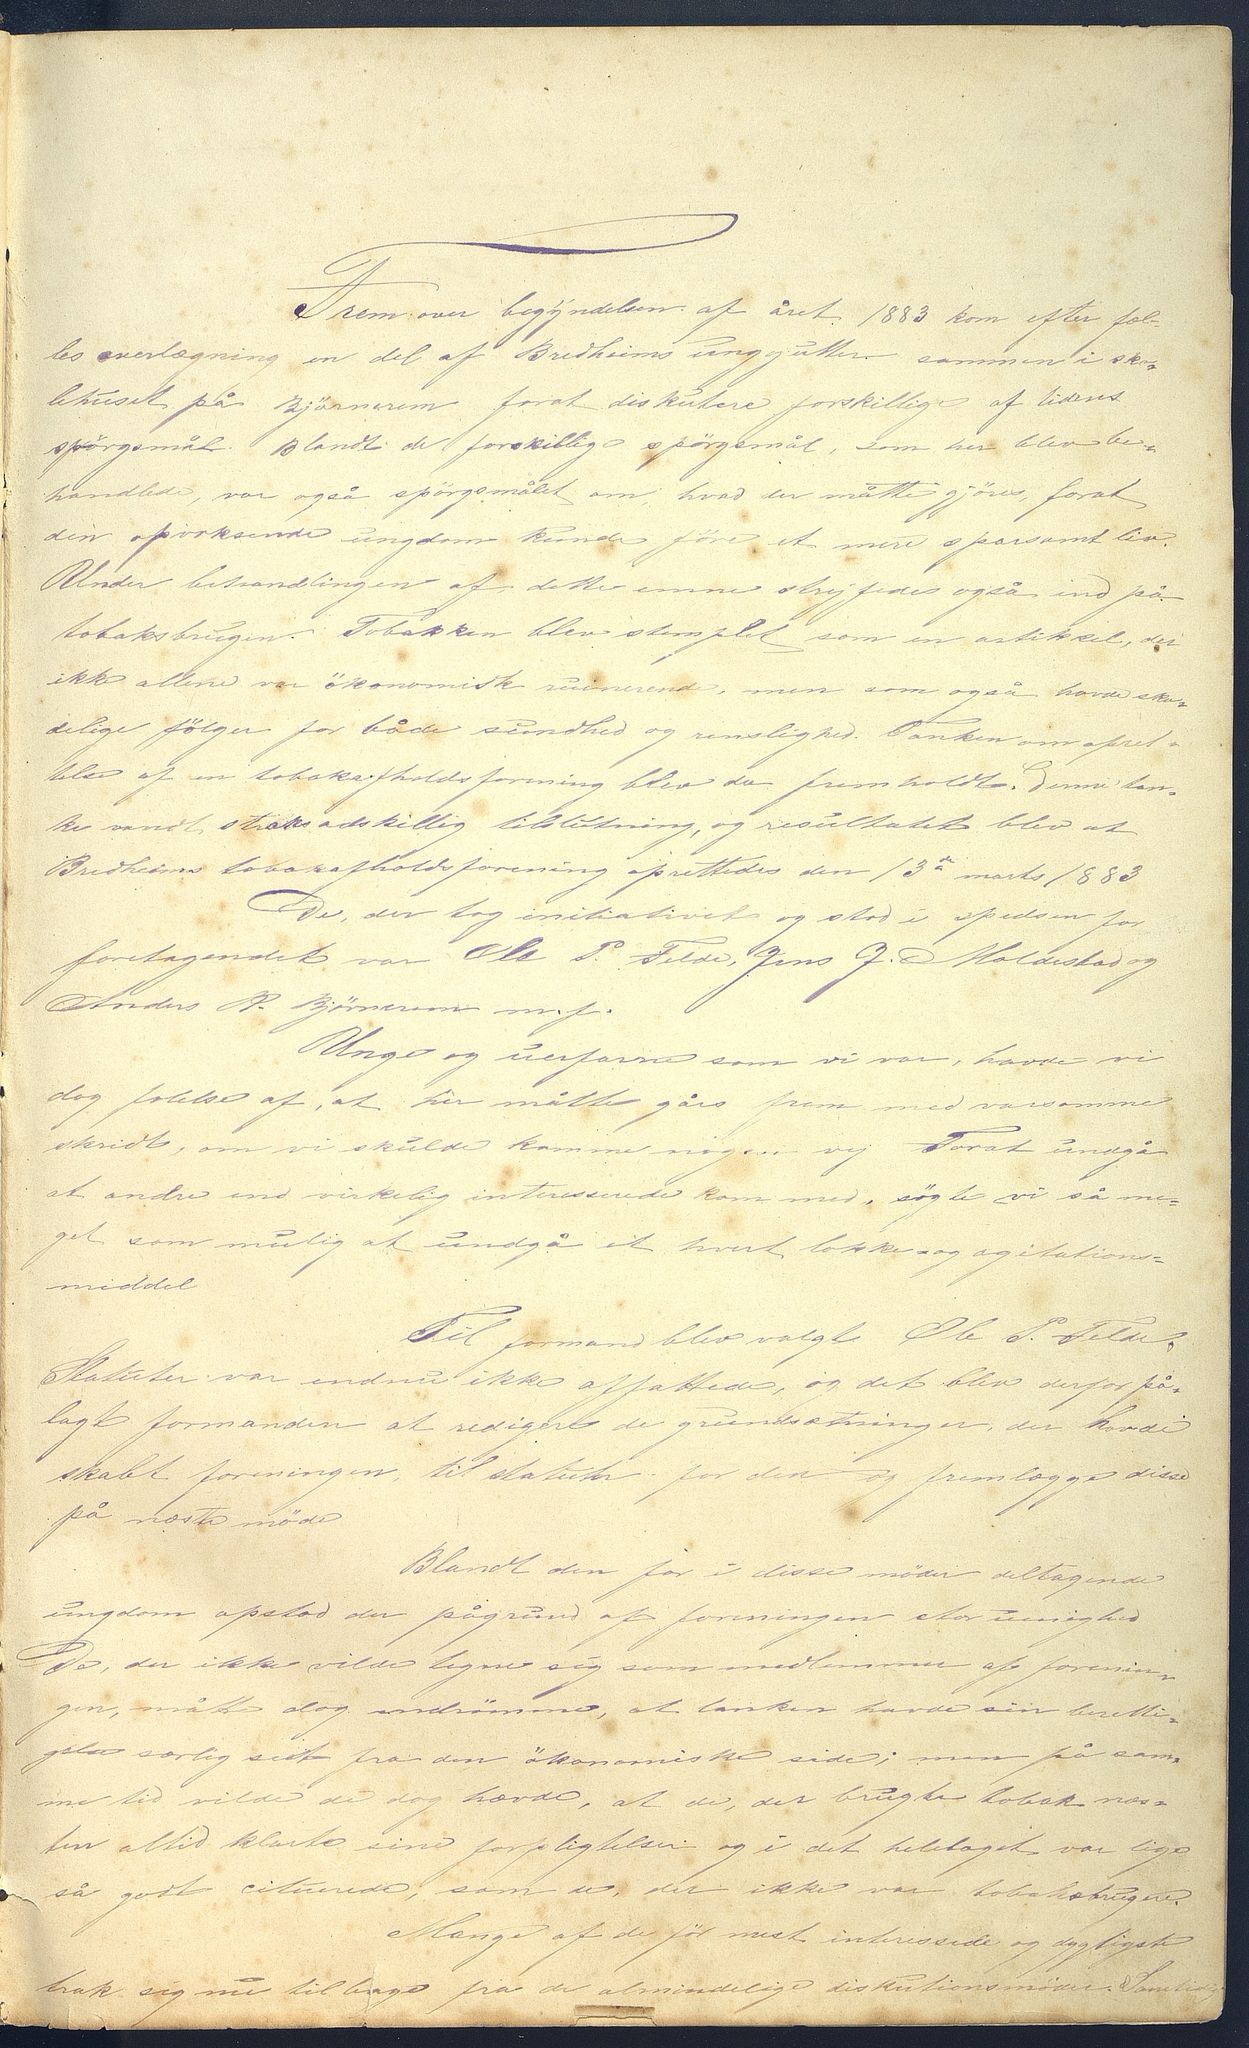 Frem over begyndelsen af året 1883 kom efter fæl-
les overlægning en del af Bredheims unggutter sammen i sko-
lehuset på Björnerem forat diskutere forskillige af tidens
spörgsmål. Blandt de forskillige spörgsmål, som her blev be-
handlede, var også spörgsmålet om, hvad der måtte gjöres, forat
den opvoksende ungdom kunde före et mere sparsomt liv.
Under behandlingen af dette emne strejfedes også ind på
tobaksbrugen. Tobakken blev stemplet som en artikkel, der
ikke allene var ökonomisk ruinerende, men som også havde ska-
delige fölger for både sundhed og renslighed. Tanken om opret-
telse af en tobaksafholdsforening blev da fremholdt. Denne tan-
ke vandt straks adskillig tilslutning, og resultatet blev at
Bredheims tobakafholdsforening oprettedes den 13de marts 1883
De, der tog initiativet og stod i spidsen for
foretagendet var Ole P. Felde, Jens J. Moldestad og
Anders R. Björnerem m.fl.
Unge og uerfarne som vi var, havde vi
dog følelse af, at her måtte gåes frem med varsomme
skridt, om vi skulde komme nogen vej Forat undgå
at andre end virkelig interesserede kom med, sögte vi så me-
get som mulig at undgå et hvert lokke- og agitations-
middel
Til formand blev valgt Ole P. Felde.
Statuter var endnu ikke affattede, og det blev derfor på-
lagt formanden at redigere de grundsætninger, der havde
skabt foreningen, til statuter for den og fremlægge disse
på næste möde
Blandt den før i disse møder deltagende
ungdom opstod der pågrund af foreningen stor uenighed
De, der ikke vilde tegne sig som medlemmer af forenin-
gen, måtte dog indrömme, at tanken havde sin beretti-
gelse særlig seet fra den ökonomiske side; men på sam-
me tid vilde de dog hævde, at de, der brugte tobak næs-
ten altid klarte sine forpligtelser og i det heletaget var lige
så godt cituerede, som de, der ikke var tobaksbrugere.
Mange af de för mest interessede og dygtigste
trak sig nu tilbage fra de almindelige diskutionsmöder. Samtidig